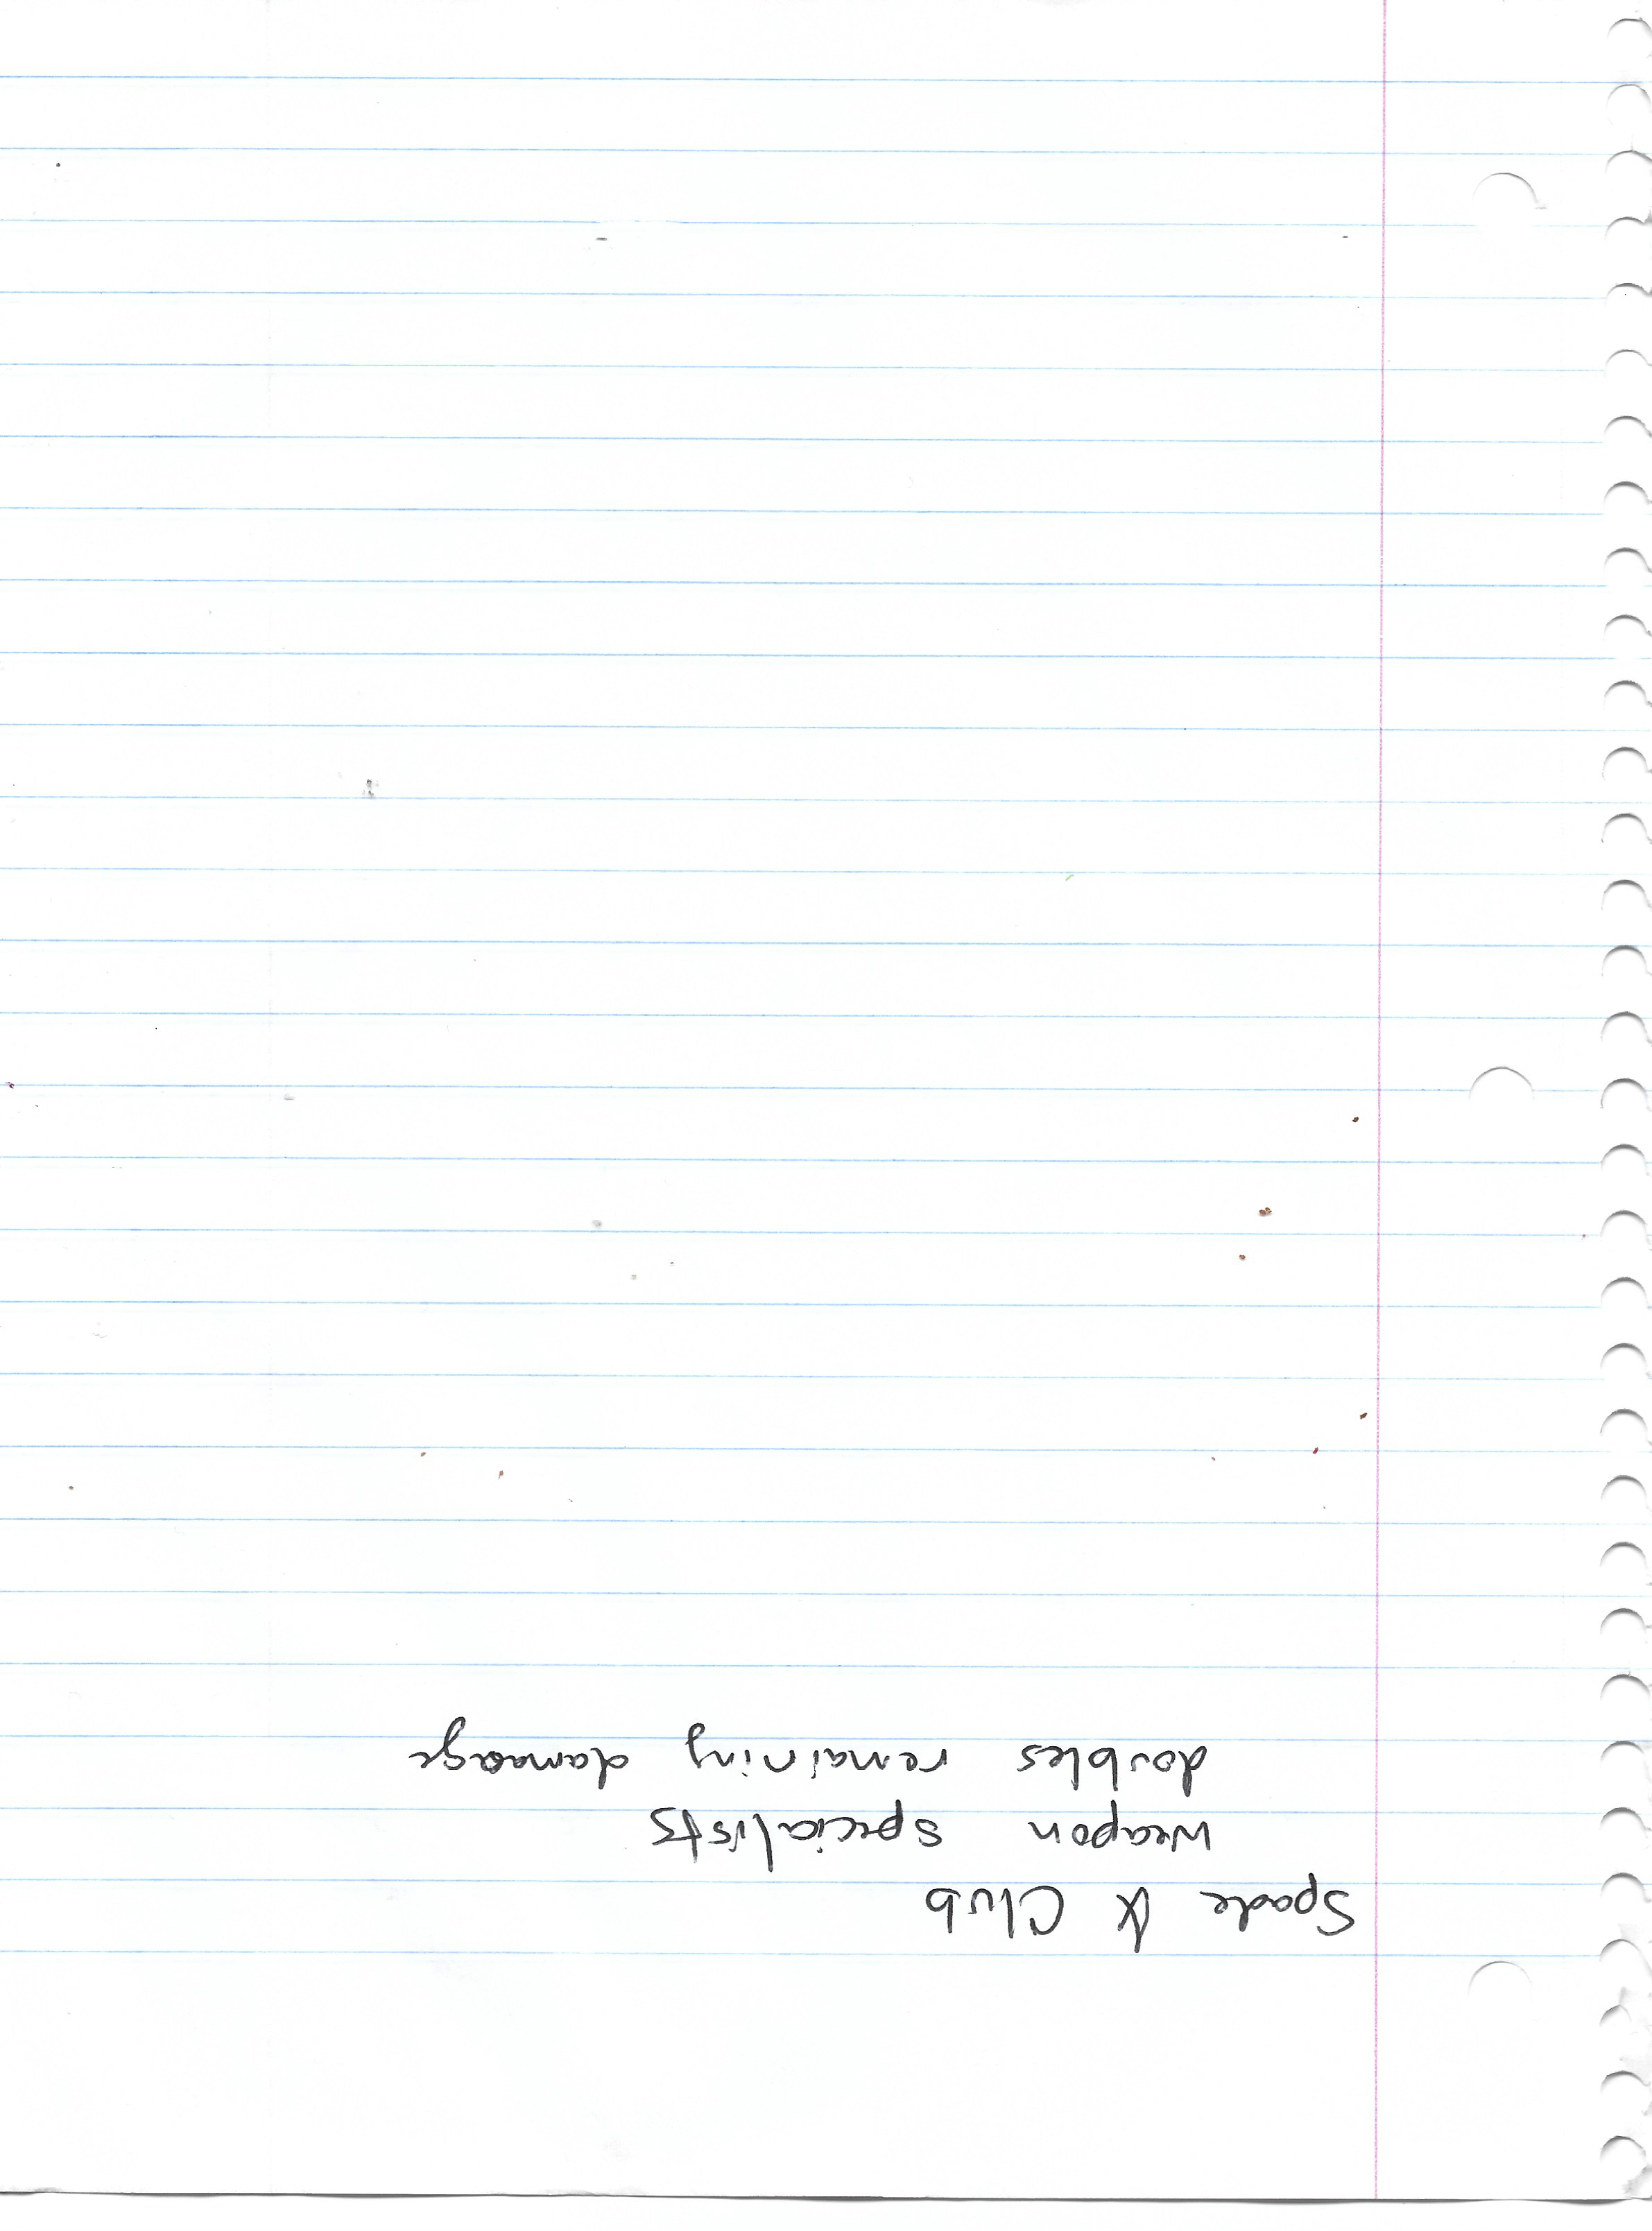 Spade & Club
weapon specialists
doubles remaining damaage